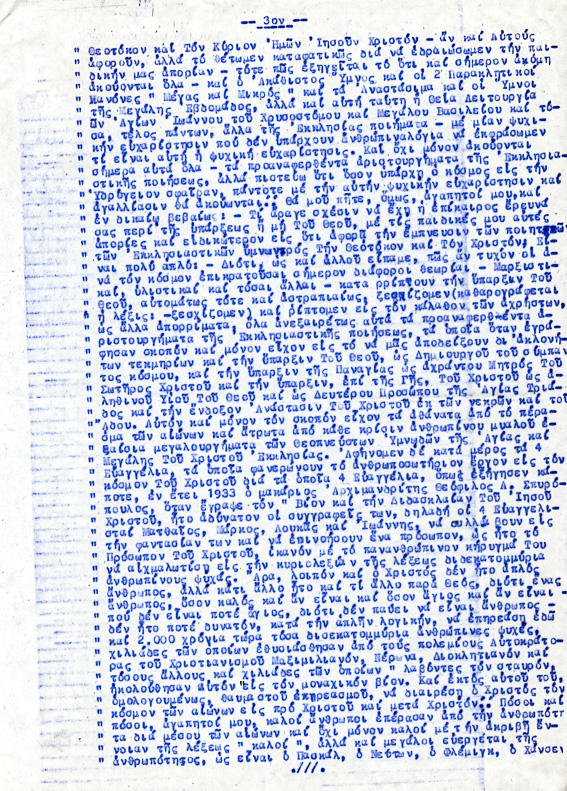 -- 3ον --
" Θεοτόκον καί Τόν Κύριον Ἡμῶν Ἰησοῦν Χριστόν - ἄν καί Αὐτούς
" ἀφοροῦν, ἀλλά τό θέτωμεν καταφατικῶς διά νά ἑδραιώσωμεν τήν παι-
" δικήν μας ἀπορίαν - τότε πῶς ἐξηγεῖται τό ὅτι καί σήμερον ἀκόμη
" ἀκούονται ὅλα - καί ὁ Ἀκάθιστος Ὕμνος καί οἱ 2 Παρακλητικοί
" Κανόνες " Μέγας καί Μικρός " καί τά Ἀναστάσιμα καί οἱ Ὕμνοι
" τῆς Μεγάλης Ἑβδομάδος, ἀλλά καί αὐτή ταύτη ἡ Θεία Λειτουργία
" τῶν Ἁγίων Ἰωάννου τοῦ Χρυσοστόμου καί Μεγάλου Βασιλείου καί τό-
" σα, τέλος πάντων, ἄλλα τῆς Ἐκκλησίας ποιήματα - μέ μίαν ψυχι-
" κήν εὐχαρίστησιν πού δέν ὑπάρχουν ἀνθρωπιναλόγια νά ἐκφράσωμεν
" τί εἶναι αὐτή ἡ ψυχική εὐχαρίστησις. Καί ὄχι μόνον ἀκούονται
" σήμερα αὐτά ὅλα - τά προαναφερθέντα ἀριστουργήματα τῆς Ἐκκλησια-
" στικῆς ποιήσεως, ἀλλά πιστεύω ὅτι ὅσον ὑπάρχη ὁ κόσμος εἰς τήν
" Ὑδρόγειον σφαῖραν, πάντοτε μέ τήν αὐτήν ψυχικήν εὐχαρίστησιν καί
" ἀγαλλίασιν θά ἀκούωνται.. Θά μοῦ πῆτε, ὅμως, ἀγαπητοί μου, καί
" ἐν δικαίῳ βεβαίως: - Τί ἆραγε σχέσιν νά ἔχη ἡ ἐπίκαιρος ἔρευνά
" σας περί τῆς ὑπάρξεως ἤ μή τοῦ Θεοῦ, μέ τίς παιδικές μου αὐτές
" ἀπορίες καί εἰδικώτερον εἰς ὅτι ἀφορᾶ τήν ἔμπνευσιν τῶν ποιητῶν
" τῶν Ἐκκλησιαστικῶν ὕμνων πρός τήν Θεοτόκον καί Τόν Χριστόν. Εἶ-
" ναι πολύ ἁπλό: - Διότι, ὡς καί ἀλλοῦ εἴπαμε, πώς ἄν τυχόν οἱ ἀ-
" νά τόν κόσμον ἐπικρατοῦσαι σήμερον διάφοροι θεωρίαι - Μαρξιστι-
" καί, ὑλιστικαί καί τόσαι ἄλλαι - καταρρίπτουν τήν ὕπαρξιν Τοῦ
" Θεοῦ, αὐτομάτως τότε καί ἀστραπιαίως, ξεσχίζομεν(καθαρογράφεται
" ἡ λέξις: -ξεσχίζομεν) καί ρίπτομεν εἰς τόν κάλαθον τῶν ἀχρήστων,
" ὡς ἄλλα ἀπορρίματα, ὅλα ἀνεξαιρέτως αὐτά τά προαναφερθέντα ἀ-
" ριστουργήματα τῆς Ἐκκλησιαστικῆς ποιήσεως, τά ὁποῖα ὅταν ἐγρά-
" φησαν σκοπόν καί μόνον εἶχον εἰς τό νά μᾶς ἀποδείξουν δι' ἀκλονή-
" των τεκμηρίων καί τήν ὕπαρξιν Τοῦ Θεοῦ, ὡς Δημιουργοῦ τοῦ σύμπαν-
" τος κόσμου, καί τήν ὕπαρξιν τῆς Παναγίας ὡς ἀχράντου Μητρός Τοῦ
" Σωτῆρος Χριστοῦ καί τήν ὕπαρξιν, ἐπί τῆς Γῆς, Τοῦ Χριστοῦ ὡς ἀ-
" ληθινοῦ Υἱοῦ Τοῦ Θεοῦ καί ὡς Δευτέρου Προσώπου τῆς Ἁγίας Τριά-
" δος καί τήν ἔνδοξον Ἀνάστασιν Τοῦ Χριστοῦ ἐκ τῶν νεκρῶν καί τοῦ
" Ἅδου. Αὐτόν καί μόνον τόν σκοπόν εἶχον τά ἀθάνατα ἀπό τό πέρα-
" σμα τῶν αἰώνων καί ἄτρωτα ἀπό κάθε κρίσιν ἀνθρωπίνου μυαλοῦ ἐ-
" ξαίσια μεγαλουργήματα τῶν θεοπνεύστων Ὑμνωδῶν τῆς Ἁγίας καί
" Μεγάλης Τοῦ Χριστοῦ Ἐκκλησίας. Ἀφήνομεν δέ κατά μέρος τά 4
" Εὐαγγέλια, τά ὁποῖα φανερώνουν τό ἀνθρωποσωτήριον ἔργον εἰς τόν
" κόσμον Τοῦ Χριστοῦ διά τά ὁποῖα 4 Εὐαγγέλια, ὅπως ἐξήγησεν κά-
" ποτε, ἐν ἔτει 1933 ὁ μακάριος Ἀρχιμανδρίτης Θεόφιλος Α. Σπυρό-
" πουλος, ὅταν ἔγραψε τόν " Βίον καί τήν Διδασκαλίαν Τοῦ Ἰησοῦ
" Χριστοῦ, ἦτο ἀδύνατον οἱ συγγραφεῖς των, δηλαδή οἱ 4 Εὐαγγελι-
" σταί Ματθαῖος, Μάρκος, Λουκᾶς καί Ἰωάννης, νά συλλάβουν εἰς
" τήν φαντασίαν των καί νά ἐπινοήσουν ἕνα πρόσωπον, ὡς ἦτο τό
" Πρόσωπον Τοῦ Χριστοῦ, ἱκανόν μέ τό πανανθρώπινον κήρυγμα Του
" νά αἰχμαλωτίση εἰς τήν κυριολεξία τῆς λέξεως δισεκατομμύρια
" ἀνθρωπίνους ψυχάς. Ἄρα, λοιπόν καί ὁ Χριστός δέν ἦτο ἁπλός
" ἄνθρωπος, ἀλλά κάτι ἄλλο ἦτο καί τί ἄλλο παρά Θεός, διότι ἕνας
" ἄνθρωπος, ὅσον καλός καί ἄν εἶναι καί ὅσον ἅγιος καί ἄν εἶναι -
" πού δέν εἶναι ποτέ ἅγιος, διότι δέν παύει νά εἶναι ἄνθρωπος -
" δέν ἦτο ποτέ δυνατόν, κατά τήν ἁπλῆν λογικήν, νά ἐπηρεάση ἐδῶ
" καί 2.000 χρόνια τώρα τόσα δισεκατομμύρια ἀνθρώπινες ψυχές,
" χιλιάδες τῶν ὁποίων ἐθυσιάσθησαν ἀπό τούς πολεμίους Αὐτοκράτο-
" ρας τοῦ Χριστιανισμοῦ Μαξιμιλιανόν, Νέρωνα, Διοκλητιανόν καί
" τόσους ἄλλους καί χιλιάδες τῶν ὁποίων " λαβόντες τόν σταυρόν,
" ἠκολούθησαν αὐτόν εἰς τόν μοναχικόν βίον. Καί ἐκτός αὐτοῦ τοῦ,
" ὁμολογουμένως, θαυμαστοῦ ἐπηρεασμοῦ, νά διαιρέση ὁ Χριστός τόν
" κόσμον τῶν αἰώνων εἰς πρό Χριστοῦ καί μετά Χριστόν.. Πόσοι καί
" πόσοι, ἀγαπητοί μου, καλοί ἄνθρωποι ἐπέρασαν ἀπό τήν ἀνθρωπότη-
" τα διά μέσου τῶν αἰώνων καί ὄχι μόνον καλοί μέ τήν ἀκριβῆ ἔν-
" νοιαν τῆς λέξεως " καλοί ", ἀλλά καί μεγάλοι εὐεργέται τῆς
" ἀνθρωπότητος, ὡς εἶναι ὁ Πασκάλ, ὁ Νεύτων, ὁ Φλέμιγκ, ὁ Χάνσεν
.///.